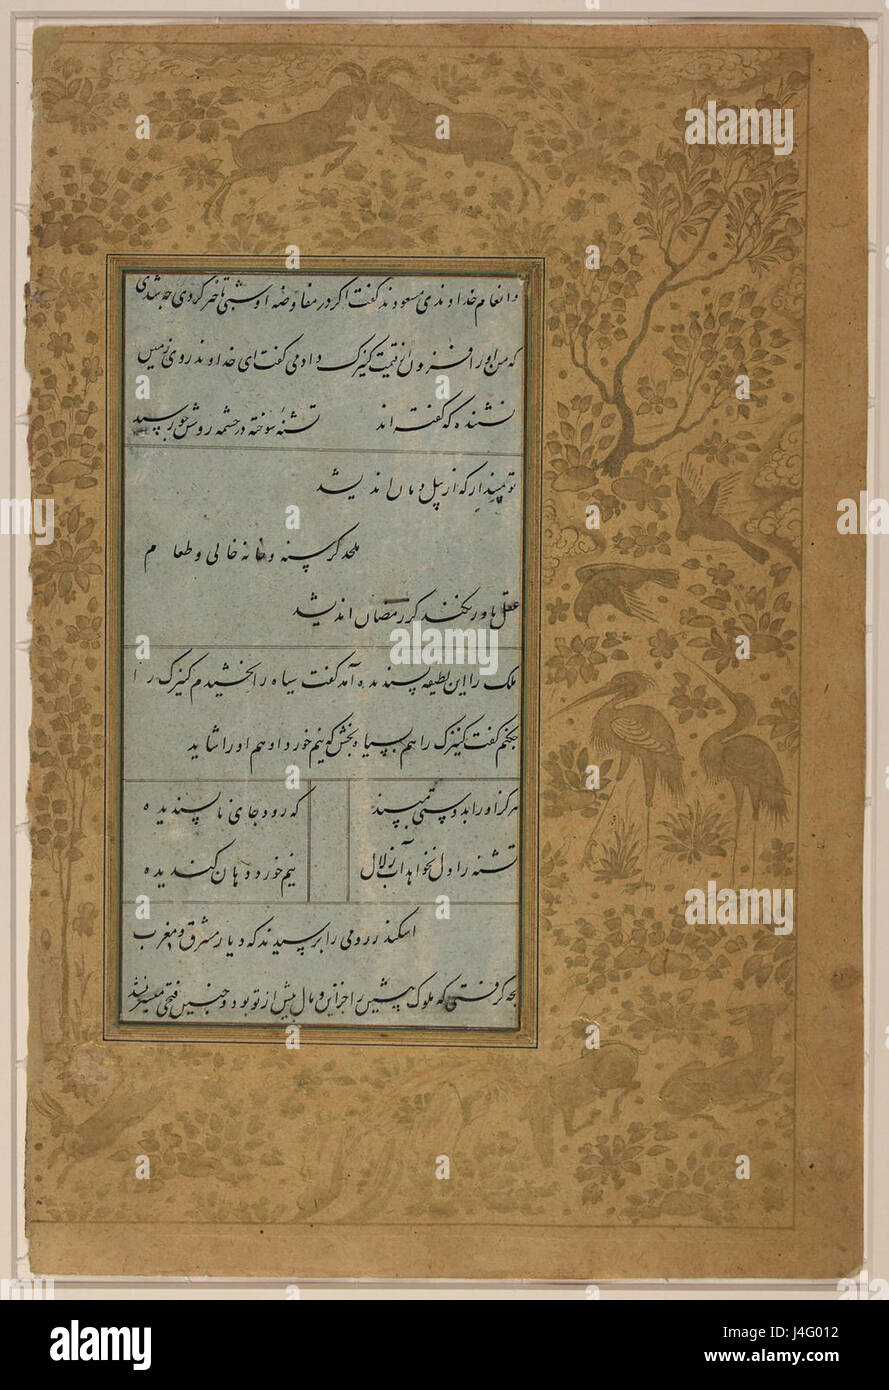 و انعام خداوندی معودند گفت اگر در مفاوضه او شبی تاخیر کردی چه شدی
که من او را افزون از قیمت کنیزک دادمی گفت ای خداوند روی زمین
نشنیده که گفته اند تشنه سوخته در چشمه روشن چو رسید
تو مپندار که از پیل دمان اندیشد
ملحد گرسنه و خانه خالی و طعام
عقل باور نکند کز رمضان اندیشد
ملک را این لطیفه پسندیده آمد گفت سیاه را بخشیدم کنیزک را
چکنم گفت کنیزک را هم بسیاه بخش که نیم خورد او هم او را شاید
هرگز او را بدوستی مپسند که رود جای ناپسندیده
تشنه را دل نخواهد آب زلال نیم خورد دهان گندیده
اسکندر رومی را پرسیدند که دیار مشرق و مغرب
بچه گرفتی که ملوک پیشین را خزاین و مال بیش از تو بود و چنین فتحی میسر نشد
alamy
alamy
Image ID: J4F012
www.alamy.com